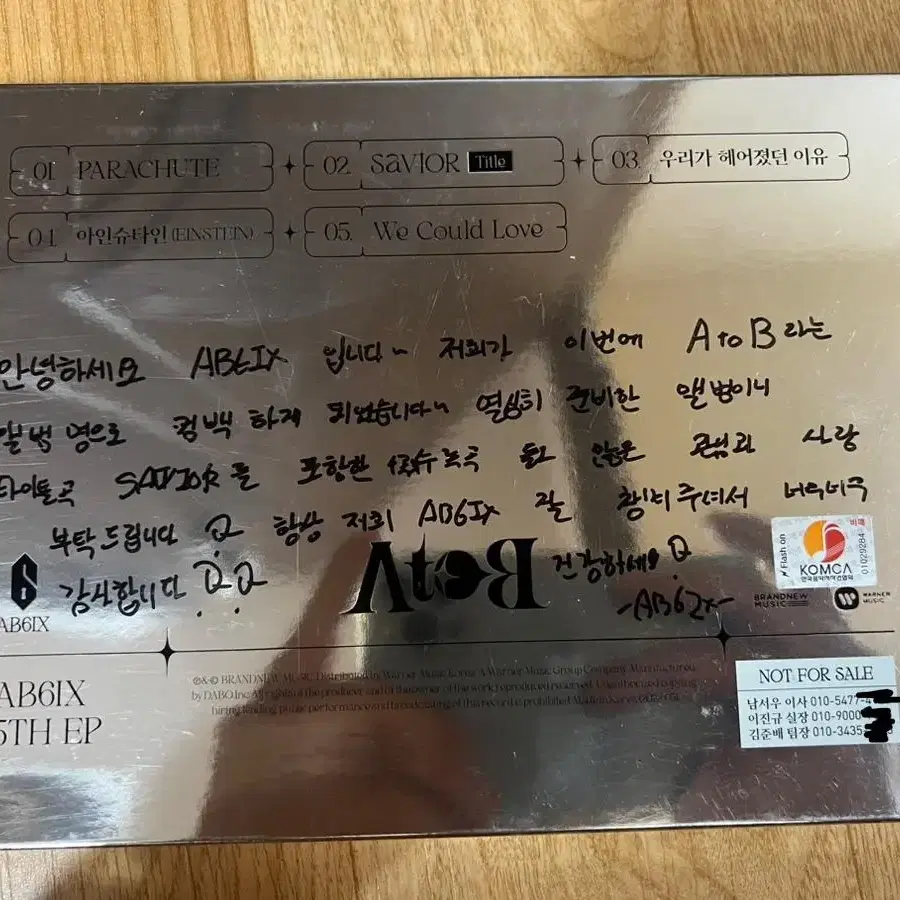 01 PARACHUTE
02 SAVIOR Title
03. 우리가 헤어졌던 이유
04 아인슈타인 (EINSTEIN)
05. We Could Love
안녕하세요 AB6IX 입니다~ 저희가 이번에 A to B 라는
앨범 명으로 컴백 하게 되었습니다~ 열심히 준비한 앨범이니
타이틀곡 SAVIOR를 포함한 수록곡 많은 관심과 사랑
부탁 드립니다 항상 저희 AB6IX 잘 챙겨주셔서 너무너무
감사합니다 건강하세요
-AB6IX-
BtoA
Flash on
비매
KOMCA
한국음악저작권협회
01029284
BRANDNEW
MUSIC
WARNER
MUSIC
6
AB6IX
AB6IX
5TH EP
℗&© BRANDNEW MUSIC. Distributed by Warner Music Korea. A Warner Music Group Company. Manufactured
by DABO Inc. All rights of the producer and of the owner of the work reproduced reserved. Unauthorized copying
hiring, lending, public performance and broadcasting of this record is prohibited. Made in Korea.
NOT FOR SALE
남서우 이사 010-5477-
이진규 실장 010-9000
김준배 팀장 010-3435